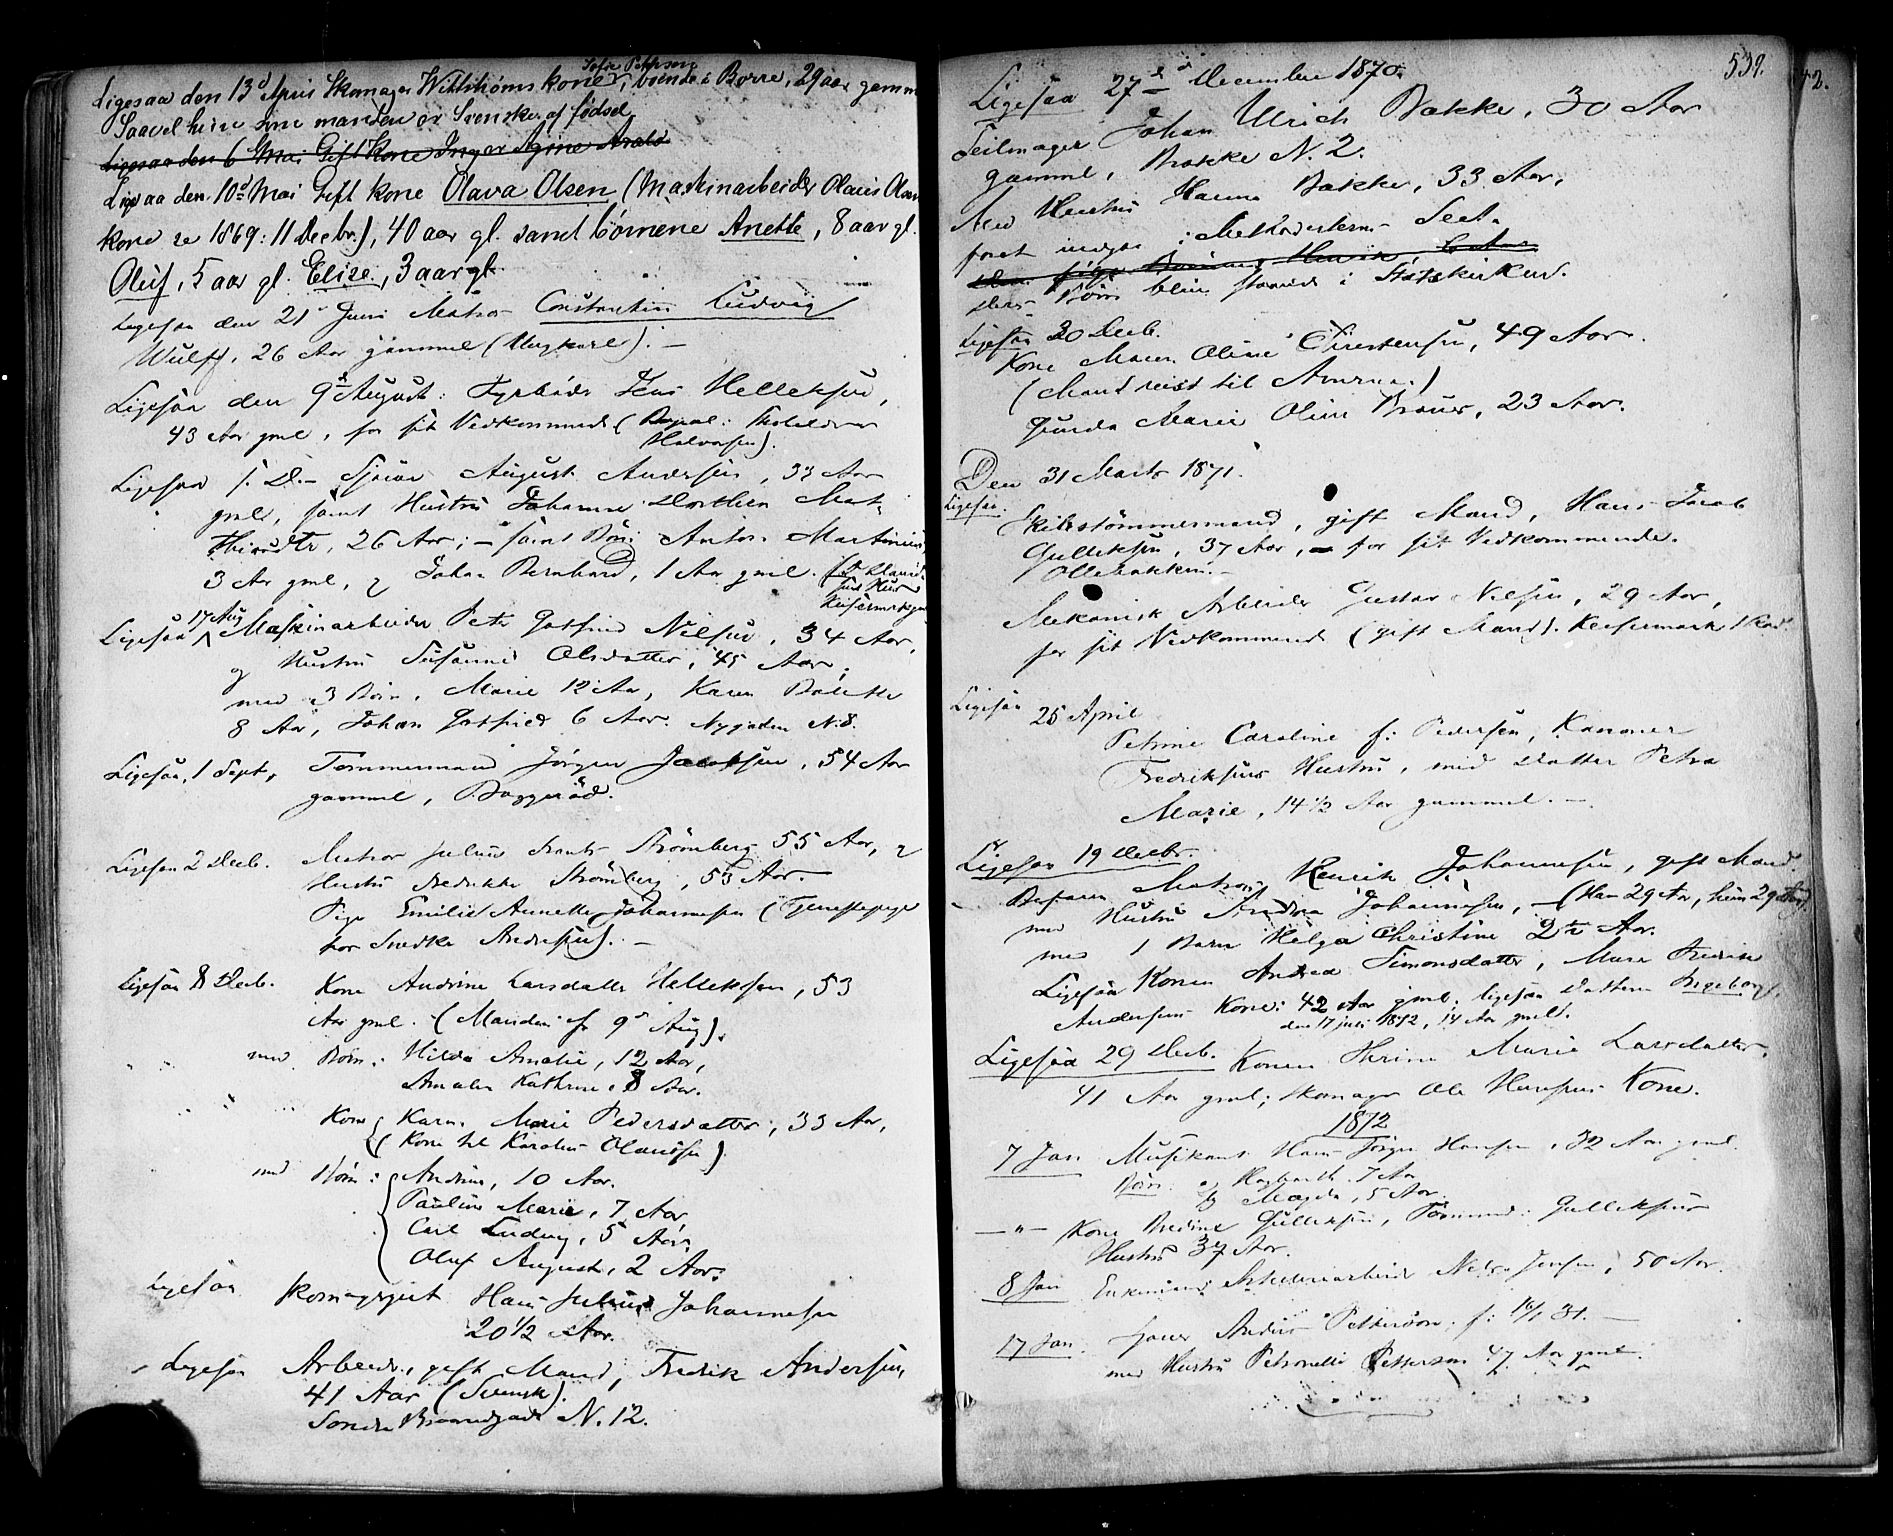 Sofie Pettersen
Ligesaa den 13d April Skomager Wikstrøms kone, boende i Borre, 29 aar gamm
Saavel hun som manden er Svensker af fødsel
Ligesaa den 6 Mai Gift Kone Inger Agine
Ligesaa den 10d Mai Gift kone Olava Olsen (Maskinarbeider Olaus Olsen
kone se 1869: 11 Decbr.), 40 aar gl. samt børnene Anette, 8 aar gl.
Oluf, 5 aar gl. Elise, 3 aar gl.
Ligesaa den 21d Juni Matros Constantin Ludvig
Wulff, 26 Aar gammel (Ungkarl). –
Ligesaa den 9d August: Fyrbøder Jens Helleksen,
43 Aar gml, for sit Vedkommende
Halvorsen).
Ligesaa s. D. – August Andersen, 33 Aar
gml, samt Hustru Johanne Dorthea Mat-
26 Aar; – samt Børn Anton Martinius
3 Aar gml, & Johan Bernhard, 1 Aar gml.
Ligesaa 17 Aug Maskinarbeider Peter Gotfried Nilsen, 34 Aar,
og Hustru Susanne Olsdatter, 45 Aar,
med 3 Børn, Marie 12 Aar, Karen
8 Aar, Johan Gotfried 6 Aar. Nygaden N. 8.
Ligesaa, 1 Sept, Tømmermand Jørgen Jacobsen, 54 Aar
gammel, Baggerød.
Ligesaa 2 Decb. Matros Julius Strömberg 55 Aar, &
Hustru Fredrikke Strömberg, 55 Aar. –
Pige Emilie Annette Johannesen (Tjenestepige
hos Snedker Andresen). –
Ligesaa 8 Decb. Kone Andrine Larsdatter Helleksen, 53
Aar gml. (Manden fr 9d Aug).
med Børn: Hilda Amalie, 12 Aar,
Amalie Kathrine, 8 Aar.
Kone Karen Marie Pedersdatter, 33 Aar,
(Kone til Karolius Olaussen)
med Børn: Andreas, 10 Aar.
Pauline Marie, 7 Aar
Carl Ludvig, 5 Aar,
Oluf August, 2 Aar.
Ligesaa Skomagergut Hans Julius Johannesen
20 1/2 Aar.
Ligesaa Arbeider, gift Mand, Fredrik Andersen,
41 Aar (Svensk).
Søndre N. 12.
539.
42.
Ligesaa 27de December 1870.
Seilmager Johan Ulrich Bakke, 30 Aar
gammel, Brakke N. 2.
Med Hustru Hanna Bakke, 33 Aar,
foret indgaa i Methodisternes Sect.
Henrik, 6 Aar
deres Børn blive staaende i Statskirken.
Ligesaa 30 Decb.
Kone Maren Oline Christensen, 49 Aar.
(Mand reist til Amerika.)
Gunda Marie Oline 23 Aar.
Den 31 Marts 1871.
Ligesaa. Skibstømmermand, gift Mand, Hans Jacob
Gulleksen, 37 Aar, – for sit Vedkommende.
Ollebakken. –
Mekanisk Arbeider Gustav Nilsen, 29 Aar,
for sit Vedkommende (gift Mand). Keisermark
Ligesaa 25 April
Petrine Caroline f: Pedersen, Kanoner
Fredriksens Hustru, med Datter Petra
Marie, 14 1/2 Aar gammel. –
Ligesaa 19 Decbr.
Matros Henrik Johannesen, gift Mand
med Hustru Andrea Johannesen, – (Han 29 Aar, hun 29 Aar)
med 1 Barn Helga Christine 2 Aar.
Ligesaa Konen Andrea Simonsdatter, Murer Fredrik
Andersens Kone: 42 Aar gml. ligesaa Datteren Ingeborg,
den 17 juni 1872, 14 Aar gml.
Ligesaa 29 Decb. Konen Thrine Marie Larsdatter,
41 Aar gml; Skomager Ole Hansens Kone.
1872
7 Jan Musikant Hans Jørgen Hansen, 32 Aar gml
Børn: a) Hagbarth, 7 Aar
b) Magda, 5 Aar.
– " – Kone Bredine Gulleksen, Gulleksens
Hustru 37 Aar.
8 Jan Enkemand Jensen, 50 Aar.
17 Jan. Petterson, f: 16/1 31. –
med Hustru Petronelle Petterson 47 Aar gml.